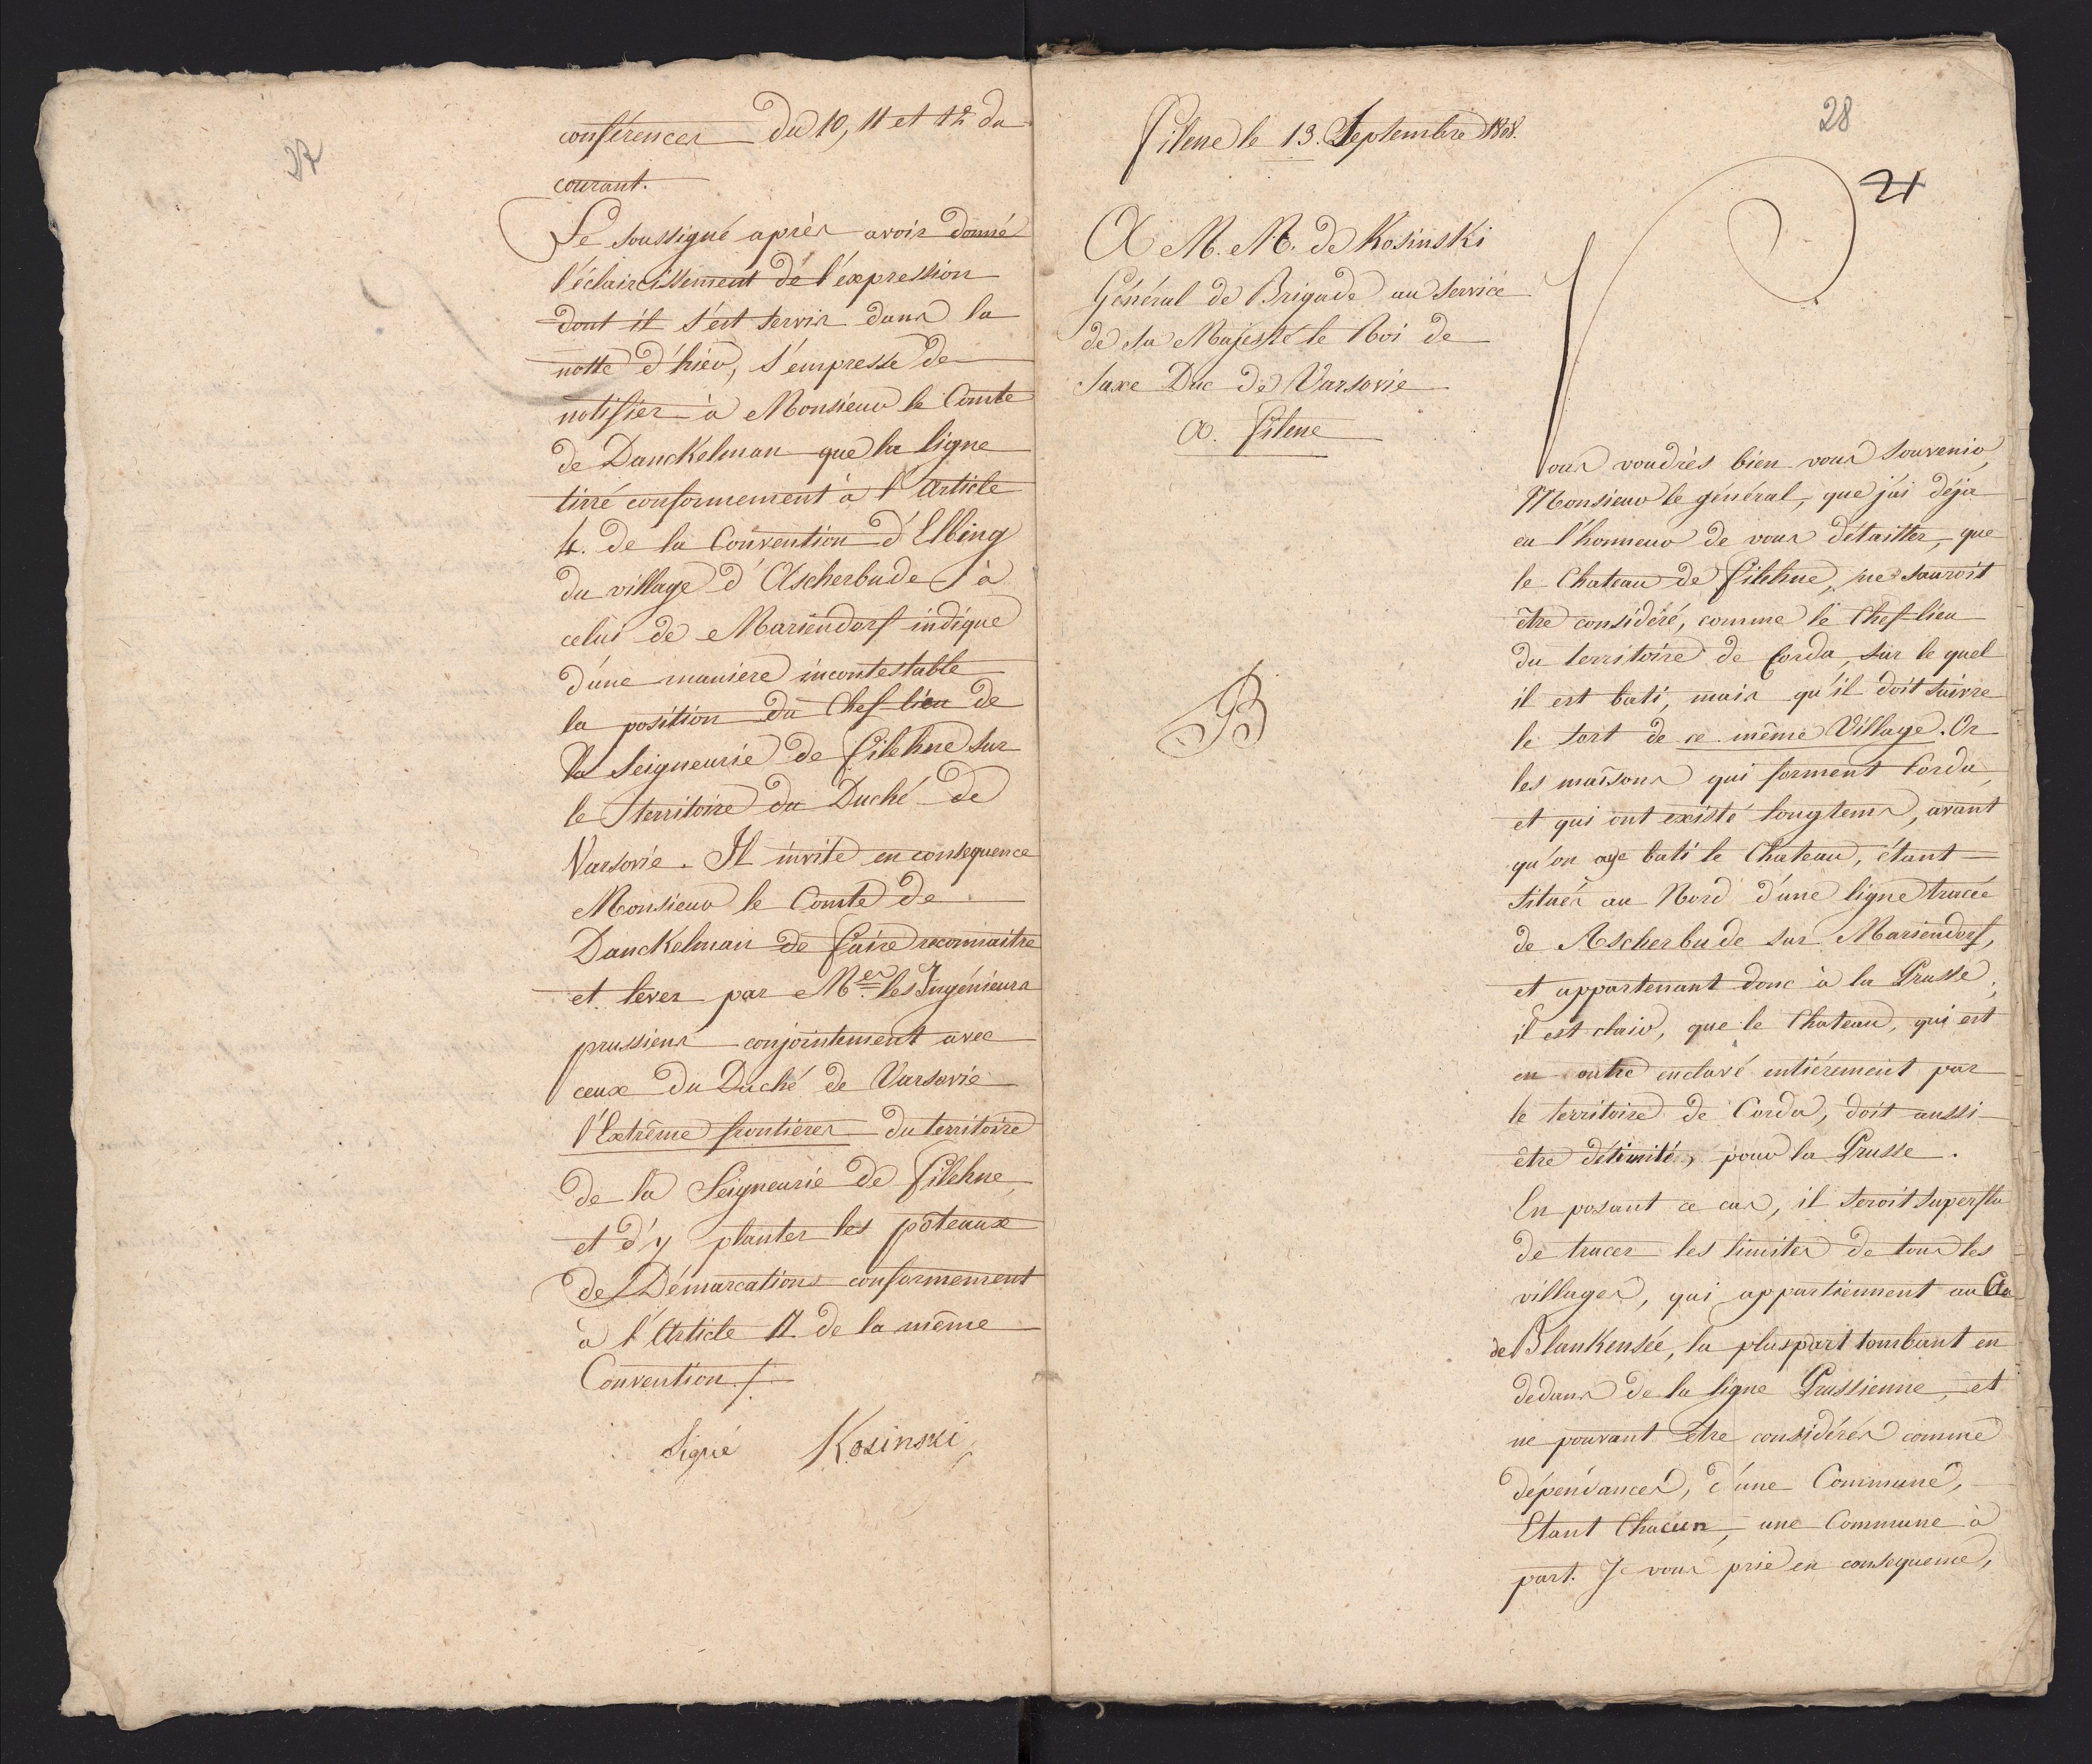 27
conférences du 10, 11 et 12 du
courant.
Le soussigné après avoir donné
l'éclaircissement de l'éxpression
dont il s'est servis dans la
notte d'hier, s'empresse de
notifier à Monsieur le Comte
de Danckelman que la ligne
tirré conformement à l'Article
4. de la Convention d'Elbing
du village d'Ascherbude à
celui de Mariendorf indique
d'une maniere incontestable
la position du Chef lieu de
la Seigneurie de Filehne sur
le territoire du Duché de
Varsovie. Il invite en consequence
Monsieur le Comte de
Danckelman de faire reconnaitre
et lever par M.rs les Ingénieurs
prussiens conjointement avec
ceux du Duché de Varsovie
l'Extrême frontières du territoire
de la Seigneurie de Filehne,
et d'y planter les pôteaux
de Démarcations conformement
à l'Article 17 de la même
Convention ./.
Signé Kosinski
28
21
Filene le 13. Septembre 1808.
A M. M. de Kosinski
Général de Brigade au Service
de Sa Majesté le Roi de
Saxe Duc de Varsovie
a. Filene
B
Vous voudrès bien vous souvenir,
Monsieur le général, que j'ai déja
eu l'honneur de vous détailler, que
le Chateau de Filehne, ne sauroit
être considéré, comme le Chef lieu
du territoire de Corda, sur le quel
il est bati, mais qu'il doit suivre
le sort de ce même Village. Or
les maisons qui forment Corda,
et qui ont existé longtems, avant
qu'on aye bati le Chateau, étant
situés au Nord d'une ligne tracée
de Ascherbude sur Mariendorf,
et appartenant donc à la Prusse;
il est clair, que le Chateau, qui est
en outre enclavé entiérement par
le territoire de Corda, doit aussi
être délimité, pour la Prusse.
En posant ce cas, il seroit superflu
de tracer les limites de tous les
villages, qui appartiennent au
de Blankensée, la pluspart tombant en
dedans de la ligne Prussienne, et
ne pouvant être considérés comme
dépendances, d'une Commune,
Etant Chacun, une Commune à
part. Je vous prie en consequence,